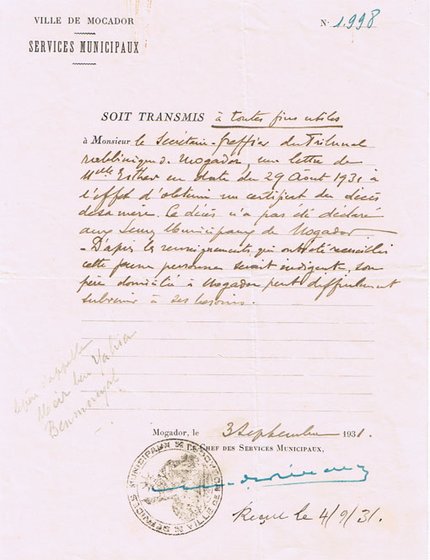 VILLE DE MOGADOR
N° 1.998
SERVICES MUNICIPAUX
SOIT TRANSMIS à toutes fins utiles
à Monsieur le Secrétaire-greffier du Tribunal
rabbinique de Mogador, une lettre de
Mlle Esther en date du 29 Août 1931 à
l'effet d'obtenir un certificat du décès
de sa mère. Ce décès n'a pas été déclaré
aux Serv. Municipaux de Mogador
- D'après les renseignements qui ont été recueillis
cette jeune personne serait indigente, son
père domicilié à Mogador peut difficilement
subvenir à ses besoins.
s'appelle
Meir ben Yahia
Mogador, le 3 Septembre 1931.
LE CHEF DES SERVICES MUNICIPAUX,
SERVICES MUNICIPAUX DE LA VILLE DE MOGADOR
Reçu le 4/9/31.